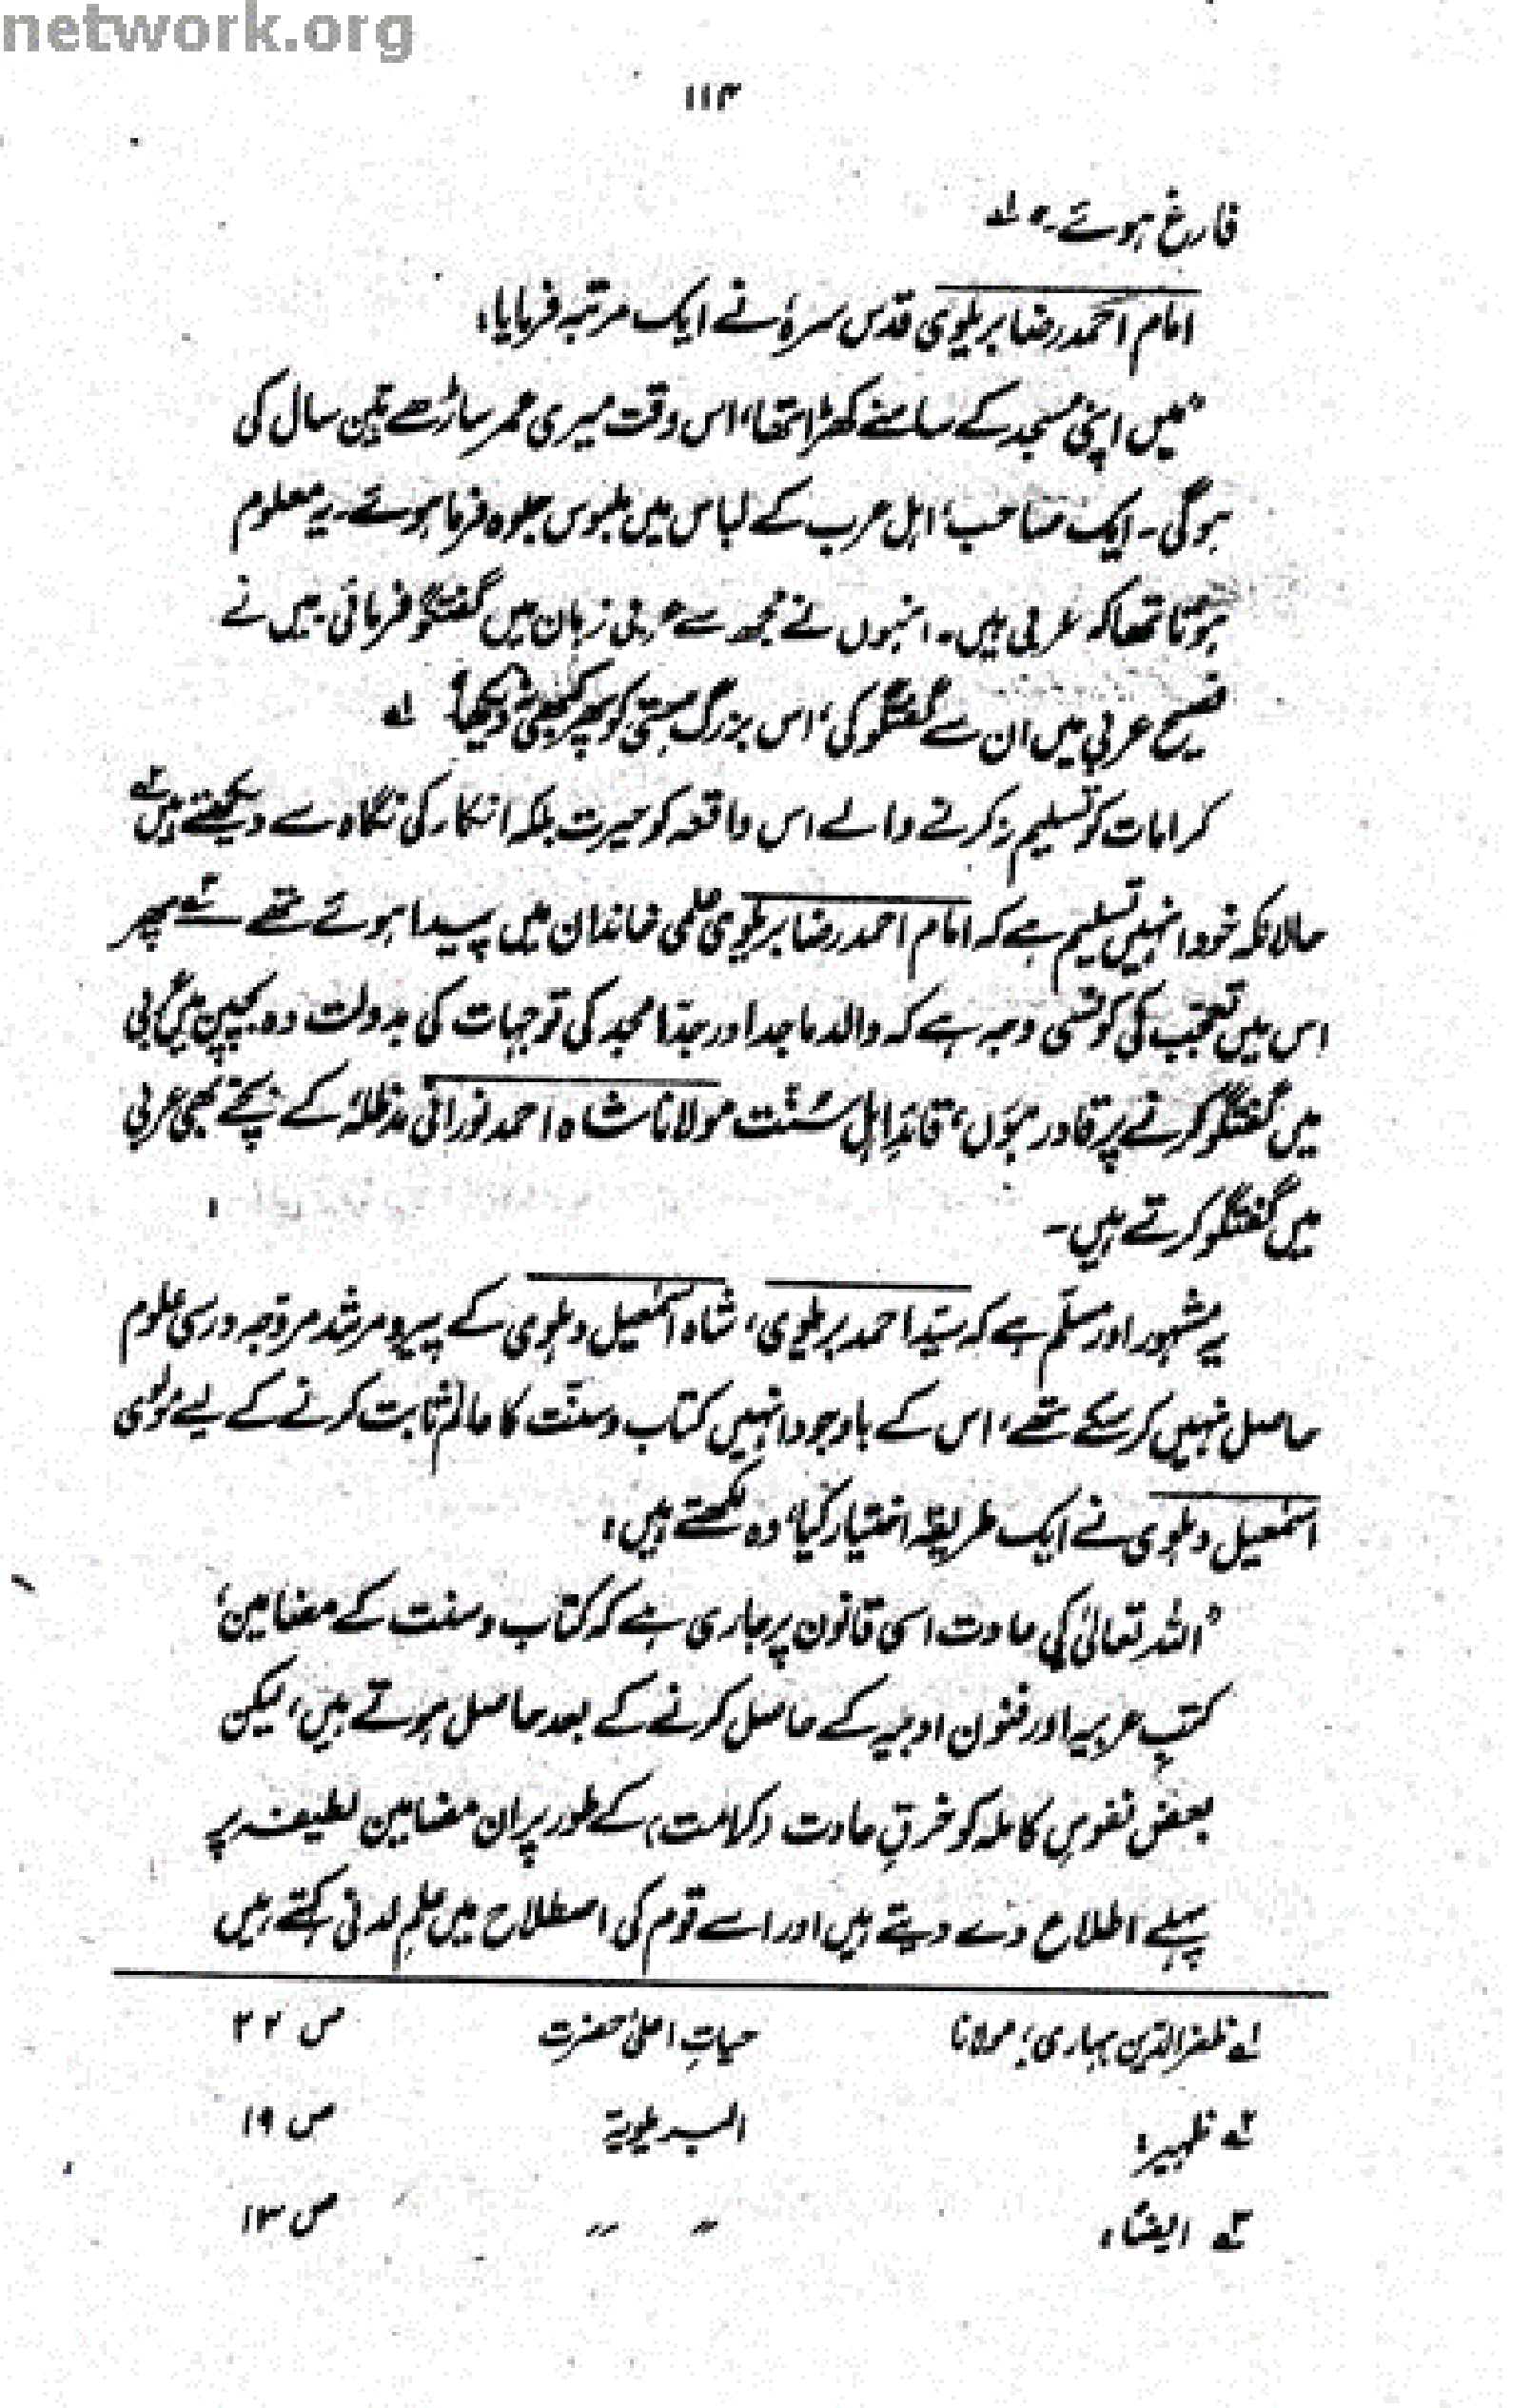 network.org
۱۱۴
فارغ ہوئے۔" ۱ے
امام احمد رضا بریلوی قدس سرہٗ نے ایک مرتبہ فرمایا:
"میں اپنی مسجد کے سامنے کھڑا تھا، اس وقت میری عمر ساڑھے تین سال کی
ہوگی۔ ایک صاحب، اہل عرب کے لباس میں ملبوس جلوہ فرما ہوئے۔ یہ معلوم
ہوتا تھا کہ عربی ہیں۔ انہوں نے مجھ سے عربی زبان میں گفتگو فرمائی، میں نے
فصیح عربی میں ان سے گفتگو کی، اس بزرگ ہستی کو پھر کبھی نہ دیکھا" ۱ے
کرامات کو تسلیم نہ کرنے والے اس واقعہ کو حیرت بلکہ انکار کی نگاہ سے دیکھتے ہیں ۲ے
حالانکہ خود انہیں تسلیم ہے کہ امام احمد رضا بریلوی علمی خاندان میں پیدا ہوئے تھے ۳ے پھر
اس میں تعجب کی کونسی وجہ ہے کہ والد ماجد اور جدّ امجد کی توجہات کی بدولت وہ بچپن میں عربی
میں گفتگو کرنے پر قادر ہوں، قائدِ اہل سُنّت مولانا شاہ احمد نورانی مدظلہٗ کے بچے بھی عربی
میں گفتگو کرتے ہیں۔
یہ مشہور اور مسلّم ہے کہ سیّد احمد بریلوی، شاہ اسمٰعیل دہلوی کے پیر و مرشد مروّجہ درسی علوم
حاصل نہیں کر سکے تھے، اس کے باوجود انہیں کتاب و سنّت کا عالم ثابت کرنے کے لیے مولوی
اسمٰعیل دہلوی نے ایک طریقہ اختیار کیا، وہ لکھتے ہیں:
"اللہ تعالیٰ کی عادت اسی قانون پر جاری ہے کہ کتاب و سنت کے مضامین،
کتبِ عربیہ اور فنون ادبیہ کے حاصل کرنے کے بعد حاصل ہوتے ہیں، لیکن
بعض نفوسِ کاملہ کو خرقِ عادت (کرامت) کے طور پر ان مضامین لطیفہ پر
پہلے اطلاع دے دیتے ہیں اور اسے قوم کی اصطلاح میں علمِ لدنی کہتے ہیں
۱ے ظفرالدین بہاری، مولانا حیاتِ اعلیٰ حضرت ص ۲۲
۲ے ظہیر: البریلویۃ ص ۱۹
۳ے ایضاً: " " ص ۱۳